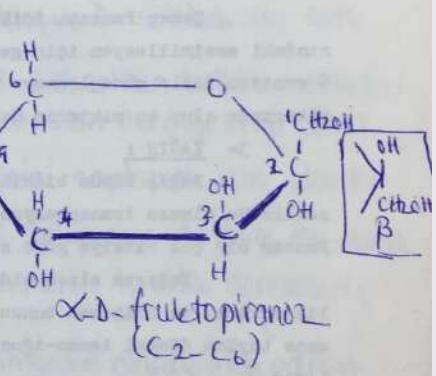 H
6 C O
H
¹CH2OH
2 C
OH
OH
CH2OH
β
H
4 C
OH
OH
3 C
H
α-D-fruktopiranoz
(C2-C6)